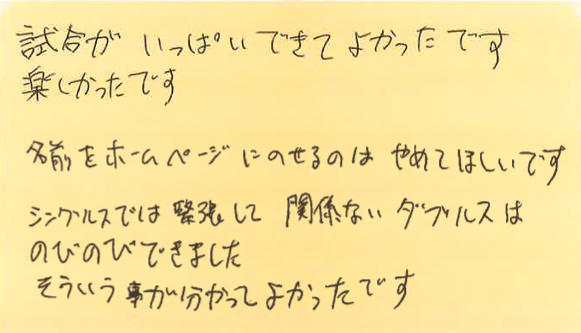 試合が いっぱいできてよかったです
楽しかったです
名前をホームページにのせるのは やめてほしいです
シングルスでは緊張して 関係ないダブルスは
のびのびできました
そういう事が分かってよかったです